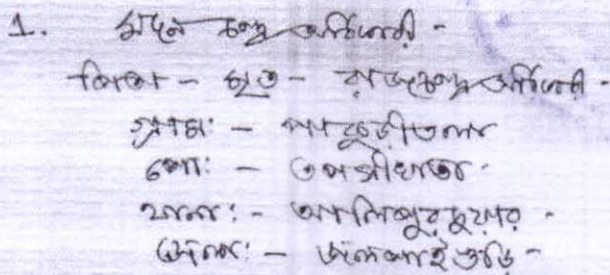 1. মদন চন্দ্র অধিকারী -
পিতা - মৃত - রাজচন্দ্র অধিকারী -
গ্রামঃ - পাকুড়ীতলা
পোঃ - তপসীখাতা
থানাঃ - আলিপুরদুয়ার -
জেলাঃ - জলপাইগুড়ি -